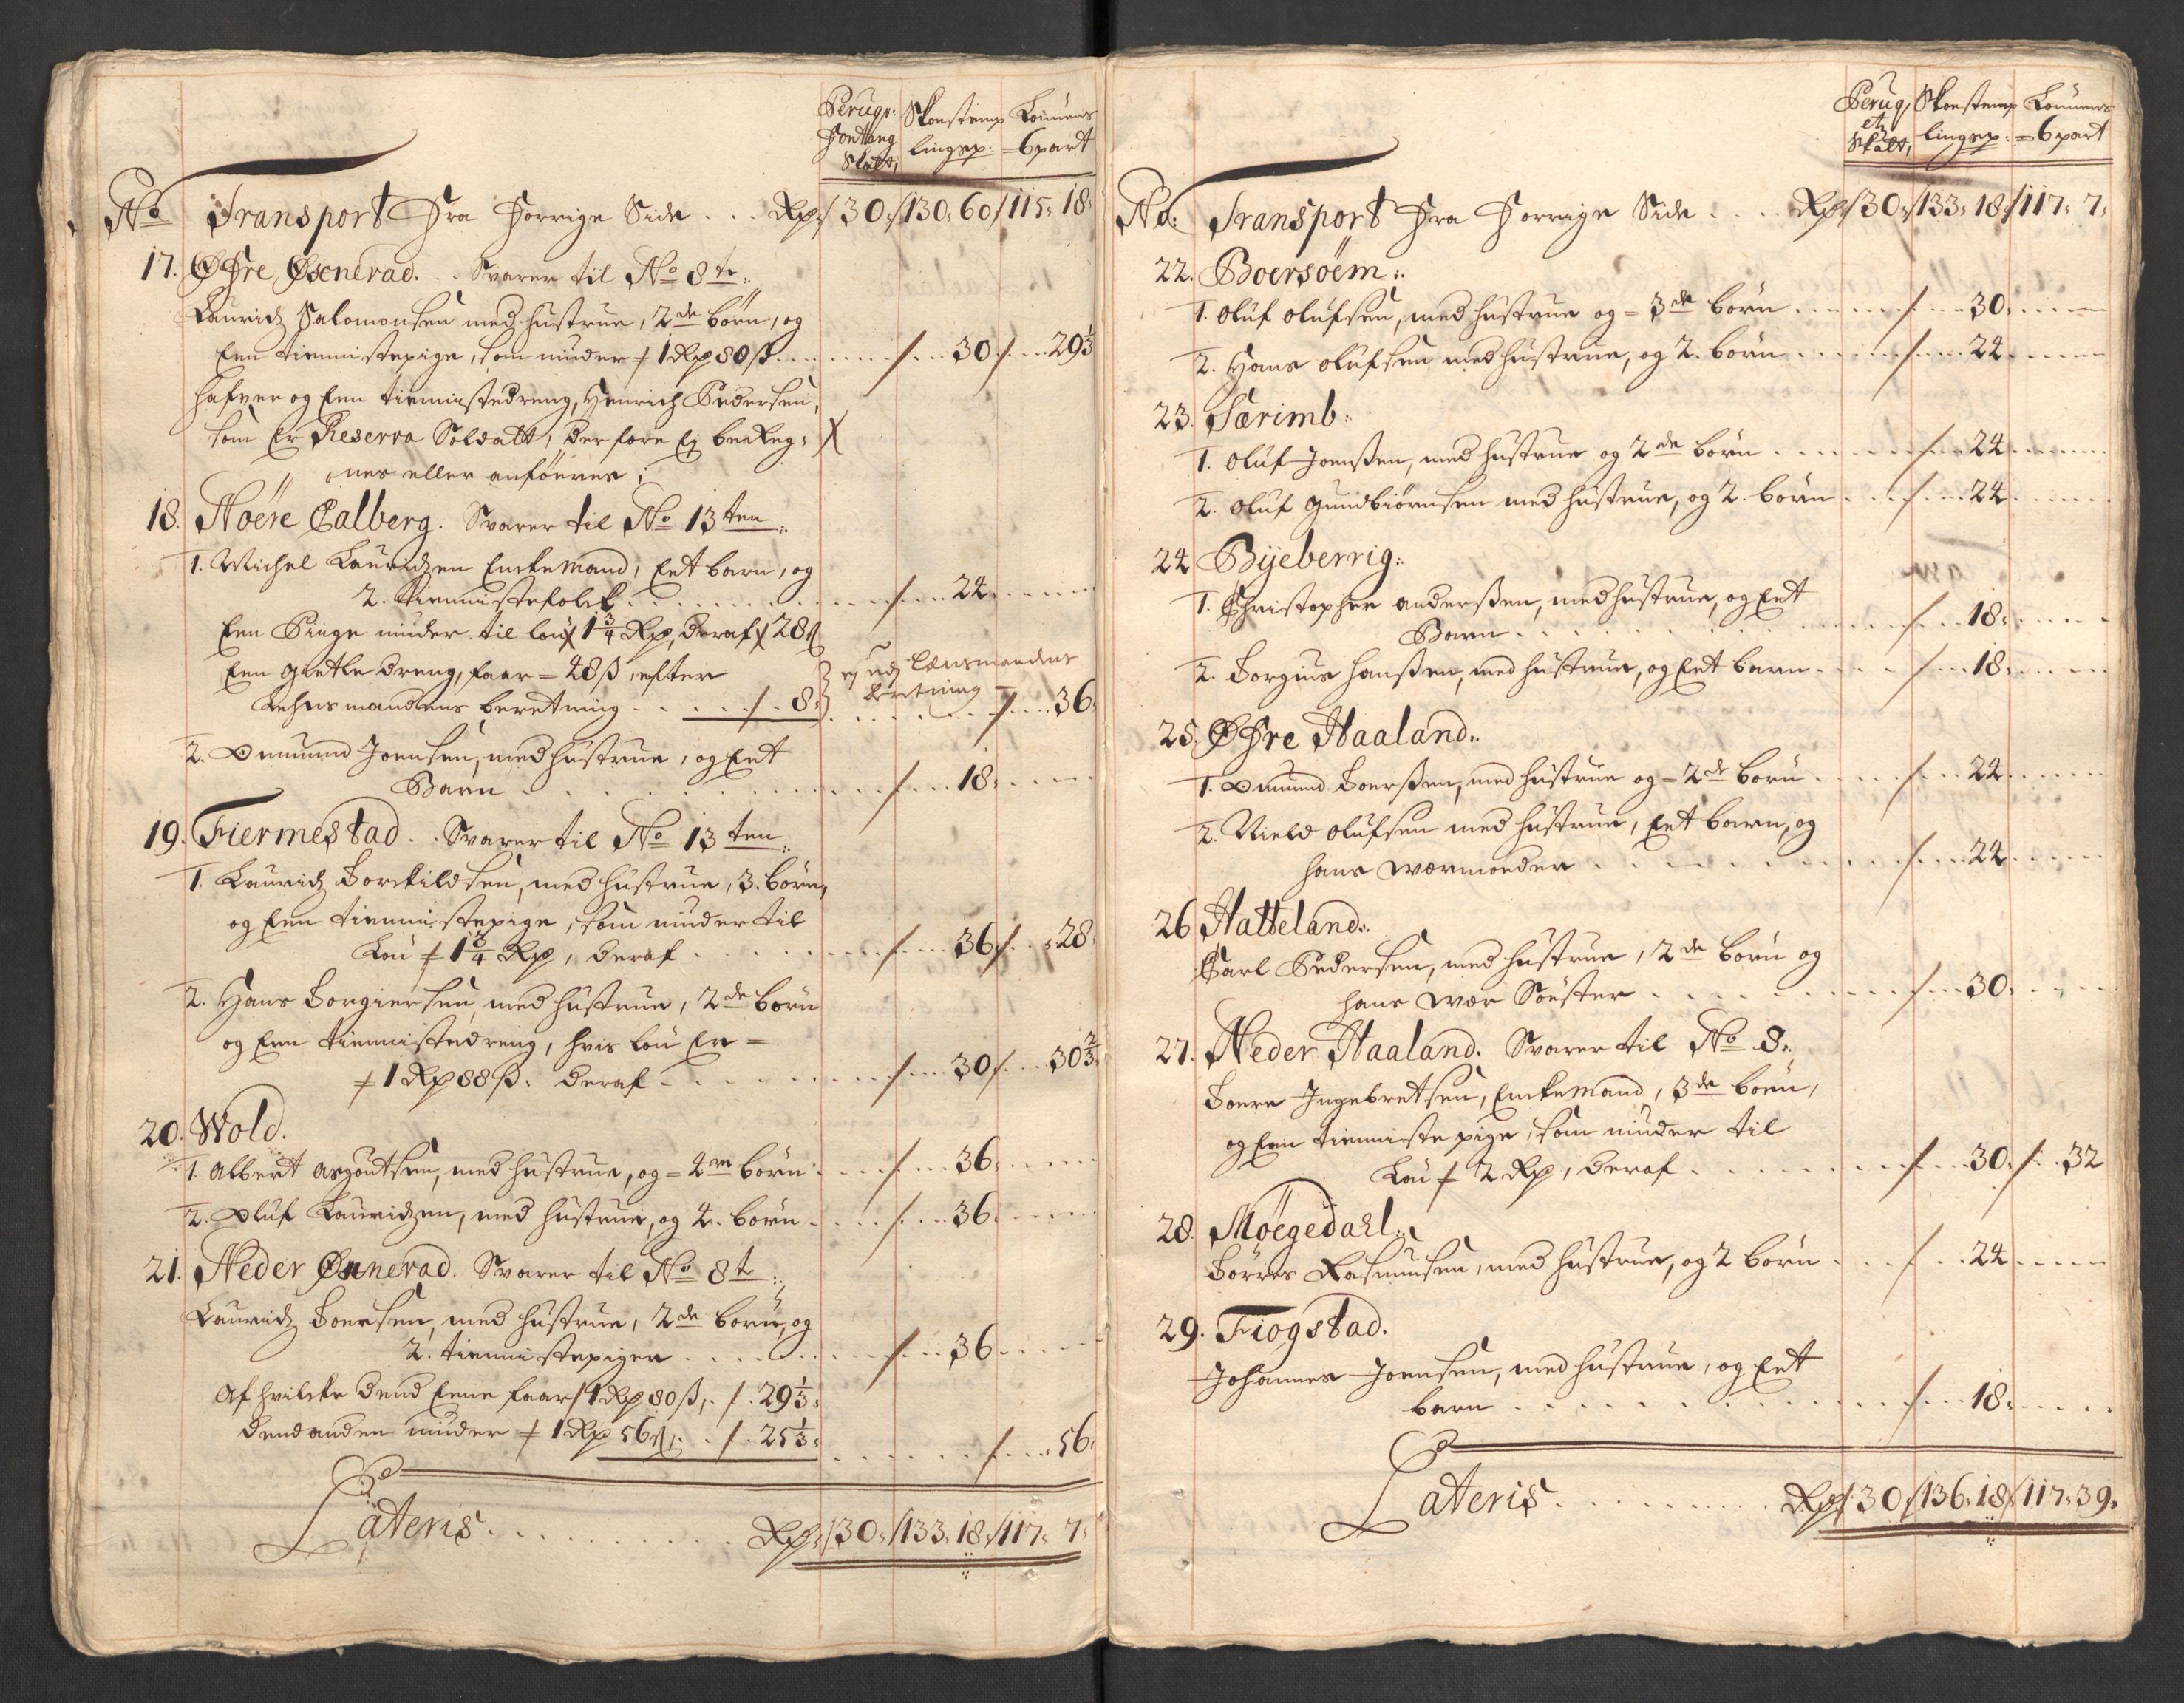 Peruqv: Skoestemp Lönnens
Fontang lingsp: =6part
Skatt,
No Transport Fra Forrige Side . . . Rp/30:/130: 60/115: 18:
17. Øfre Øsenerad. . Svarer til No 8te:
Lauridz Salomonsen med hustrue, 2de börn, og
Een tiennistepige, som nÿder / 1 Rp 80 s. . . . / . . 30 / . . 29 1/3
hafver og Een tiennistedreng, Henrich Pedersen,
som Er Reserva Soldatt, derfore Ej bereg=
nes eller anföeres;
18. Nöere Calberg. Svarer til No 13ten:
1. Michel Lauridzen Enckemand, Eet barn, og
2. tiennistefolck . . . . / . . 24 . . .
Een Piuge nÿder til lön / 1 3/4 Rp, deraf / 28 s
Een giette dreng, faar = 48 s, efter
Lehnsmandens beretning . . . / . 8: . . . / . . 36:
ej udj Lensmandens
beretning
2. Omund Joensen, med hustrue, og Eet
Barn . . . / . . 18: . . .
19. Fiermestad. . Svarer til No 13ten:
1. Lauridz Torckildsen, med hustrue, 3. börn,
og Een tiennistepige, som nÿder til
Lön / 1 3/4 Rp, deraf . . . / . . 36 / . . 28:
2. Hans Torgiersen, med hustrue, 2de börn
og Een tiennistedreng, hvis lön Er =
/ 1 Rp 88 s: deraf . . . / . . 30 / . . 30 2/3:
20. Wold.
1. Albert Asgoutsen, med hustrue, og = 4re börn . . . / . . 36: . . .
2. Oluf Lauridzen, med hustrue, og 4. börn . . . / . . 36: . . .
21. Neder Øsnerad. Svarer til No 8te:
Lauridz Toersen, med hustrue, 2de börn, og
2. tiennistepiger . . . / . . 36 . . .
Af hvilcke dend Eene faar / 1 Rp 80 s, . / . 29 1/3:
dend anden nÿder / 1 Rp 56 s, . . / . 25 1/3: . . . / . . 56:
Lateris . . . Rp:/30:/133: 18:/117: 7:
Peruq, Skoestemp Lönnens
etc lingsp: =6part
Skatt,
No: Transport Fra Forrige Side . . . Rp/30:/133: 18:/117: 7:
22. Boersöem:
1. Oluf Olufsen, med hustrue og = 3de börn . . . / . . 30: . . .
2. Hans Olufsen med hustrue, og 2. börn . . . / . . 24 . . .
23. Særimb:
1. Oluf Joenssen, med hustrue og 2de börn . . . / . . 24 . . .
2. Oluf Gundbiörnsen med hustrue, og 2. börn . . . / . . 24 . . .
24 Bijeberrig:
1. Christopher Anderssen, med hustrue, og Eet
Barn . . . / . . 18: . . .
2. Torgius Hanssen, med hustrue, og Eet barn . . . / . . 18: . . .
25. Øfre Haaland:
1. Omund Toerssen, med hustrue og = 2de börn . . . / . . 24 . . .
2. Niels Olufsen med hustrue, Eet barn, og
hans wermoeder . . . / . . 24 . . .
26 Hatteland:
Carl Pedersen, med hustrue, 2de börn og
hans wer Söuster . . . / . . 30: . . .
27. Neder Haaland. Svarer til No 8:
Toere Ingebretsen, Enckemand, 3de börn,
og Een tiennistepige, som nÿder til
Lön / 2 Rp, deraf . . . / . . 30: / . . 32
28. Möegedahl:
Törres Rasmusen, med hustrue, og 2 börn . . . / . . 24 . . .
29. Fiogstad.
Johannes Joensen, med hustrue, og Eet
barn . . . / . . 18: . . .
Lateris . . . Rp/30/136: 18/117: 39: